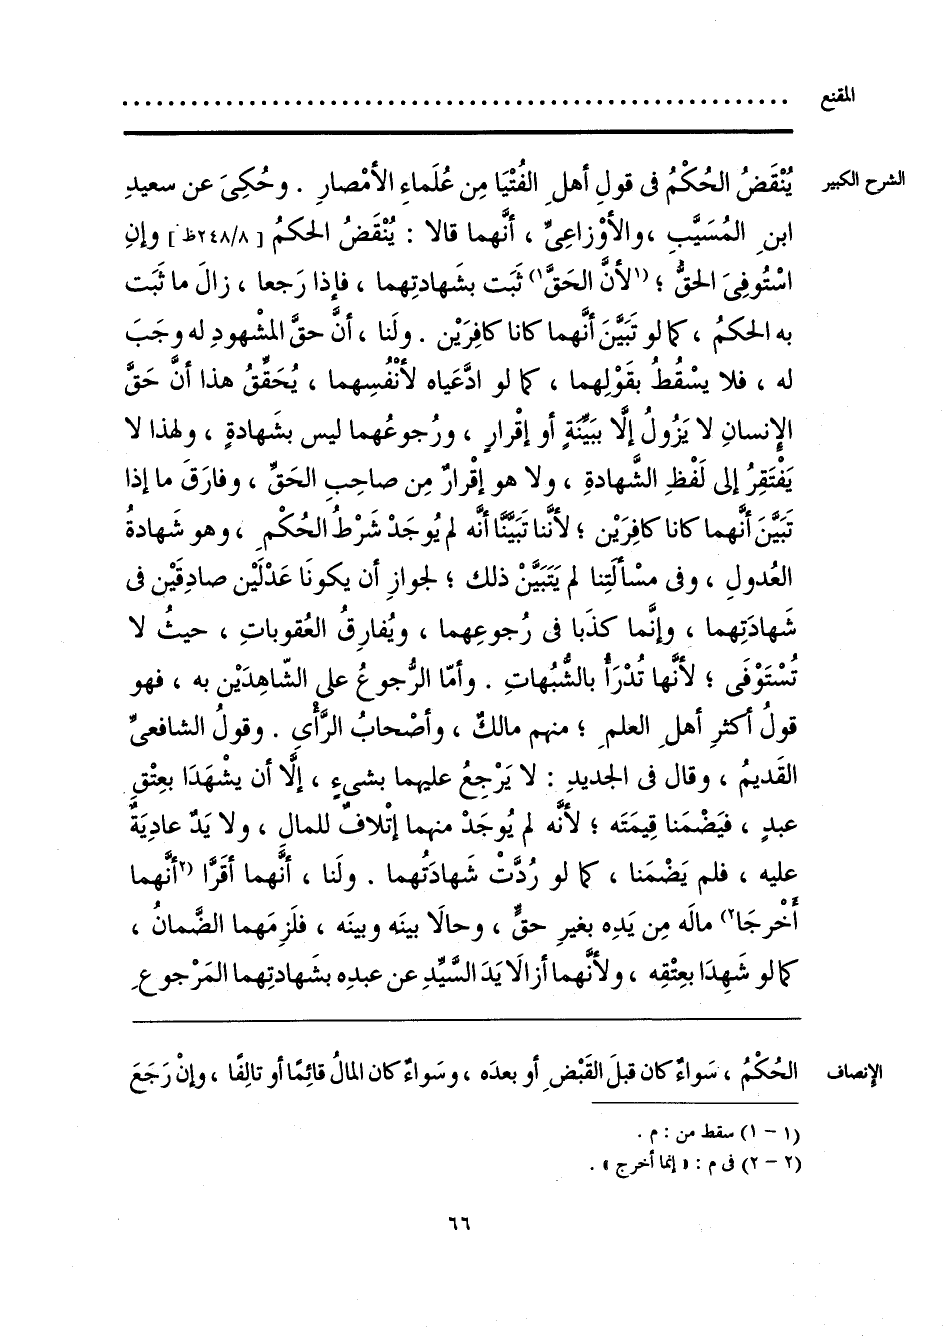 المقنع ........................................................
الشرح الكبير يُنْقَضُ الحُكْمُ فى قولِ أهلِ الفُتْيَا مِن عُلَماءِ الأمْصارِ . وحُكِىَ عن سعيدِ
ابنِ المُسَيَّبِ ، والأوْزاعِىِّ ، أنَّهما قالا : يُنْقَضُ الحكمُ [ ٢٤٨/٨ظ ] وإنِ
اسْتُوفِىَ الحقُّ ؛ (١لأنَّ الحَقَّ١) ثَبَت بشَهادتِهما ، فإذا رَجعا ، زالَ ما ثَبَت
به الحكمُ ، كما لو تَبَيَّنَ أنَّهما كانا كافِرَيْن . ولَنا ، أنَّ حقَّ المشْهودِ له وجَبَ
له ، فلا يسْقُطُ بقَوْلِهما ، كما لو ادَّعَياه لأنْفُسِهما ، يُحَقِّقُ هذا أنَّ حَقَّ
الإِنسانِ لا يَزُولُ إلَّا ببَيِّنَةٍ أو إقْرارٍ ، ورُجوعُهما ليس بشَهادةٍ ، ولهذا لا
يَفْتَقِرُ إلى لَفْظِ الشَّهادةِ ، ولا هو إقْرارٌ مِن صاحبِ الحَقِّ ، وفارَقَ ما إذا
تَبَيَّنَ أنَّهما كانا كافِرَيْن ؛ لأنَّنا تَبَيَّنَّا أنَّه لم يُوجَدْ شَرْطُ الحُكْمِ ، وهو شَهادةُ
العُدولِ ، وفى مسْألَتِنا لم يَتَبَيَّنْ ذلك ؛ لجوازِ أن يكونَا عَدْلَيْن صادِقَيْن فى
شَهادَتِهما ، وإنَّما كذَبا فى رُجوعِهما ، ويُفارِقُ العُقوباتِ ، حيثُ لا
تُسْتَوْفَى ؛ لأنَّها تُدْرَأُ بالشُّبُهاتِ . وأمَّا الرُّجوعُ على الشّاهِدَيْن به ، فهو
قولُ أكثرِ أهلِ العلمِ ؛ منهم مالكٌ ، وأصْحابُ الرَّأْىِ . وقولُ الشافعىِّ
القَديمُ ، وقال فى الجديدِ : لا يَرْجِعُ عليهما بشىءٍ ، إلَّا أن يشْهَدَا بعِتْقِ
عبدٍ ، فيَضْمَنا قِيمَتَه ؛ لأنَّه لم يُوجَدْ منهما إتْلافٌ للمالِ ، ولا يَدٌ عادِيَةٌ
عليه ، فلم يَضْمَنا ، كما لو رُدَّتْ شَهادَتُهما . ولَنا ، أنَّهما أقَرَّا (٢أنَّهما
أَخْرجَا٢) مالَه مِن يَدِه بغيرِ حقٍّ ، وحالَا بينَه وبينَه ، فلَزِمَهما الضَّمانُ ،
كما لو شَهِدَا بعِتْقِه ، ولأنَّهما أزالَا يَدَ السَّيِّدِ عن عبدِه بشَهادتِهما المَرْجوعِ
الإنصاف الحُكْمُ ، سَواءٌ كان قبلَ القَبْضِ أو بعدَه ، وسَواءٌ كان المالُ قائِمًا أو تالِفًا ، وإنْ رَجَعَ
(١ - ١) سقط من : م .
(٢ - ٢) فى م : « إنما أخرج » .
٦٦